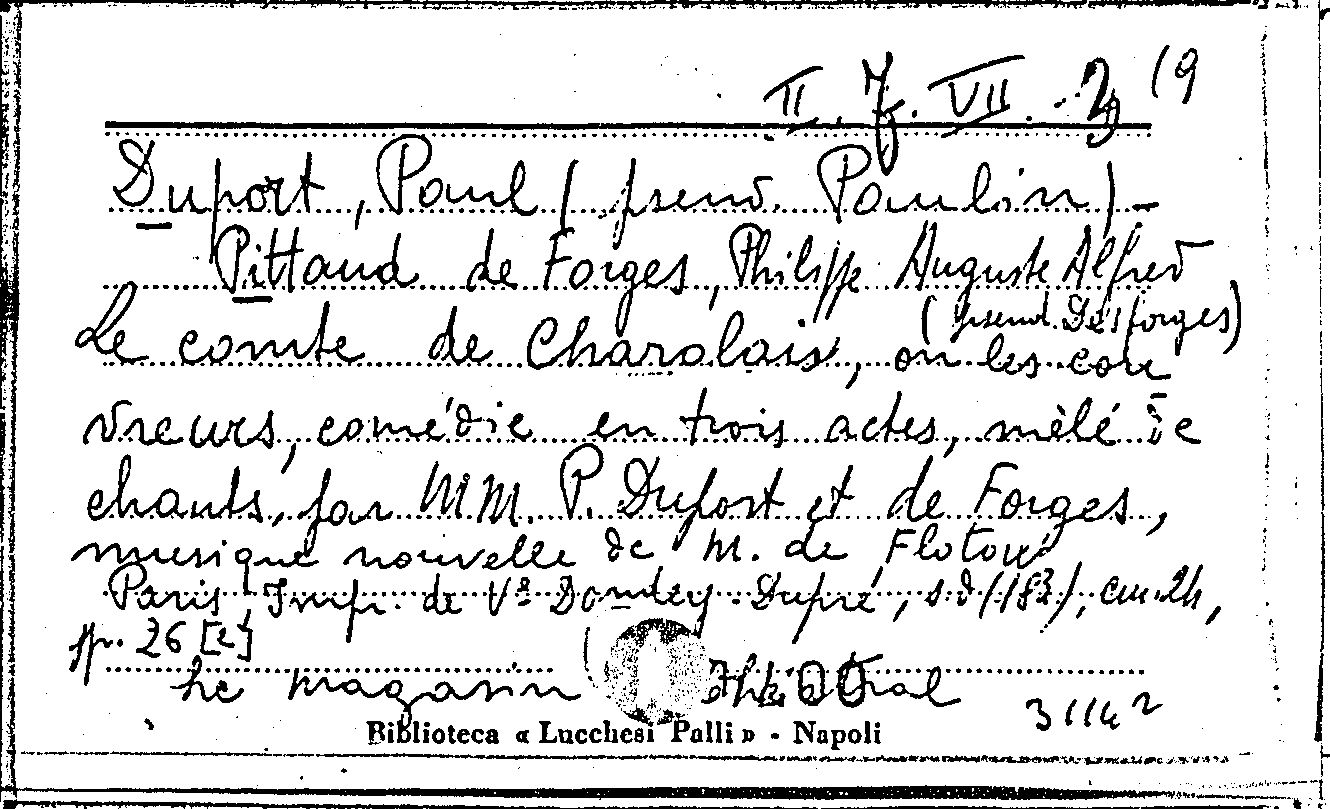 II. 7. VII. 19
Duport, Paul (pseud. Paulin) -
Pittaud de Forges, Philippe Auguste Alfred
(pseud. Desforges)
Le comte de Charolais, ou les cou
vreurs, comédie en trois actes, mêlé de
chants, par MM. P. Duport et de Forges,
musique nouvelle de M. de Flotow
Paris, Impr. de Vᵉ Dondey-Dupré, s.d. cm. 24,
pp. 26 [2]
Le magasin théâtral
Biblioteca « Lucchesi Palli » - Napoli